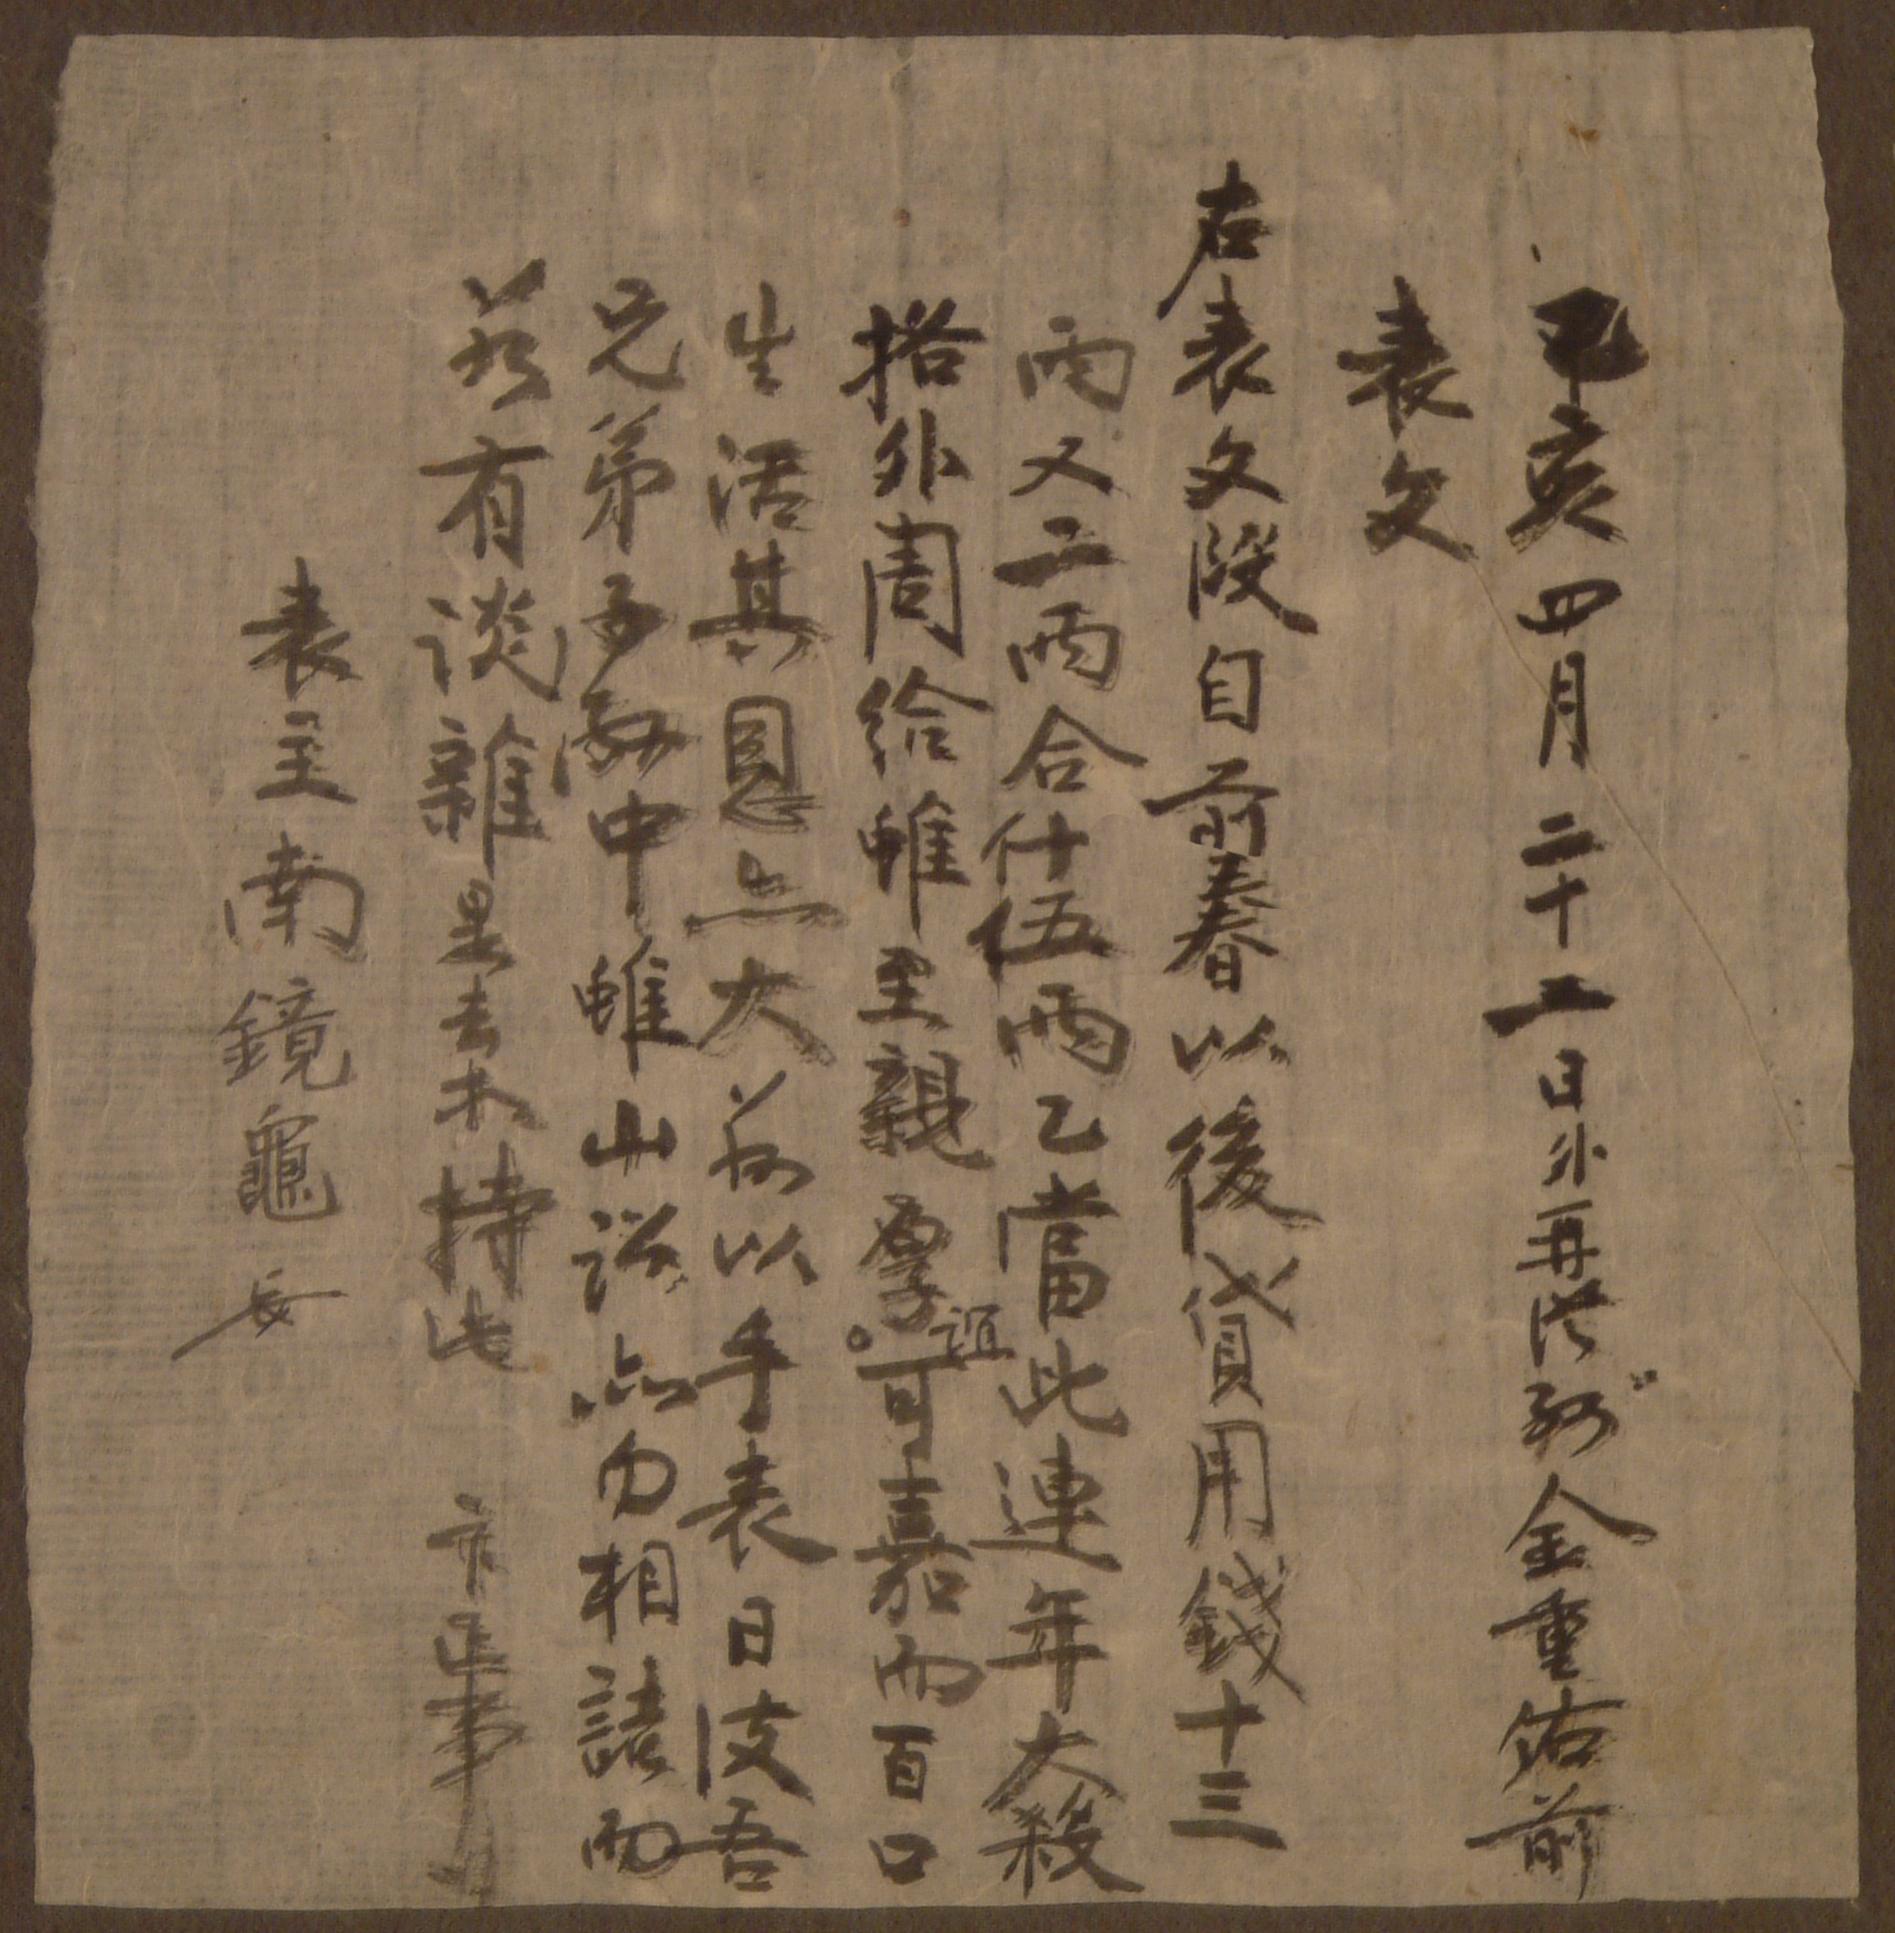 乙亥四月二十五日外再從弟金重佑前
表文
右表文段自前春以後貸用錢十三
兩又二兩合什伍兩乙當此連年大殺
格外周給雖至親厚誼可嘉而百口
生活其恩亦大故以手表日後吾
兄弟子孫中雖山訟亦勿相諸而
若有談雜是去未持此 卞正事
表主南鏡龜